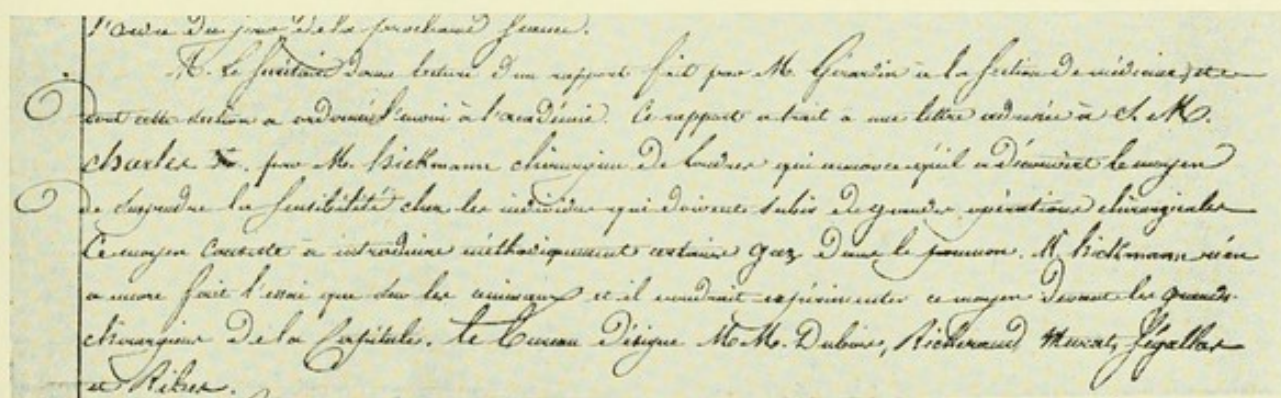 l'ordre du jour de la prochaine séance.
M. Le Secrétaire donne lecture d'un rapport fait par M. Girardin à la section de médecine, et
dont cette section a ordonné l'envoi à l'académie. Ce rapport a trait à une lettre adressée à S. M.
Charles X. par M. hickmann chirurgien de Londres qui annonce qu'il a découvert le moyen
de suspendre la sensibilité chez les individus qui doivent subir de grandes opérations chirurgicales
Ce moyen consiste à introduire méthodiquement certains gaz dans le poumon. M. hickmann n'en
a encore fait l'essai que sur les animaux et il voudrait expérimenter ce moyen devant les grands
chirurgiens de la Capitale. le bureau désigne M.M. Dubois, Richerand, Murat, Ségallas
et Ribes.